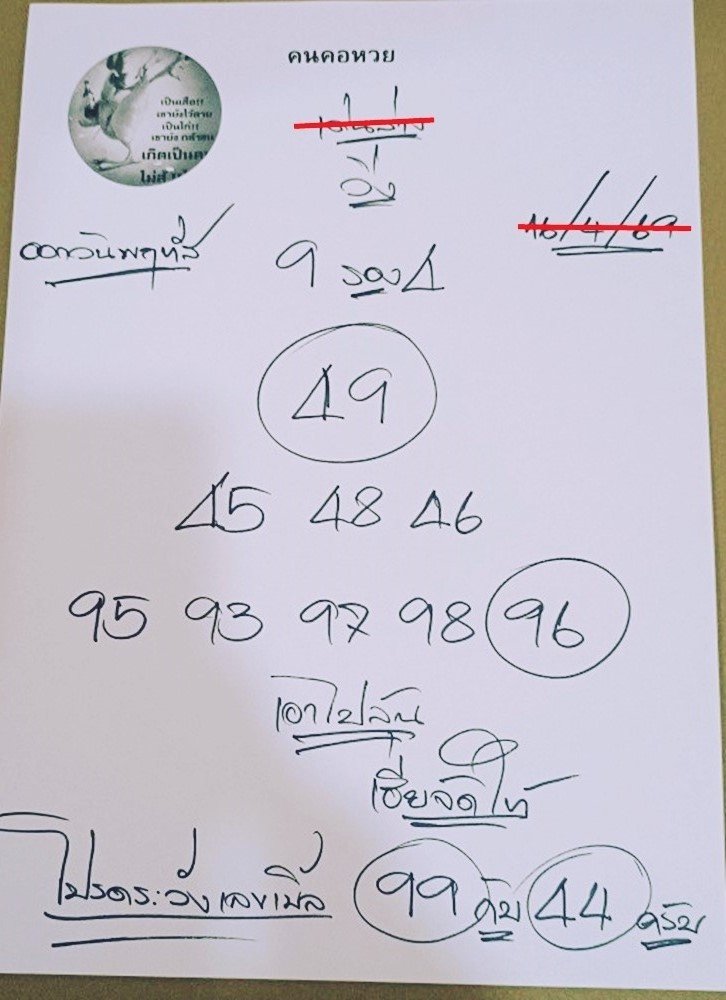 คนคอหวย
เป็นเสือ!!
เขายังไว้ลาย
เป็นไก่!!
เขายัง
เกิดเป็นค
เด่นล่าง
16/4/69
ออกวันพฤหัส
9 รอง 4
49
45 48 46
95 93 97 98 96
เอาไปลุ้น
เฮียจัดให้
โปรดระวังเลขเบิ้ล 99 กับ 44 ครับ